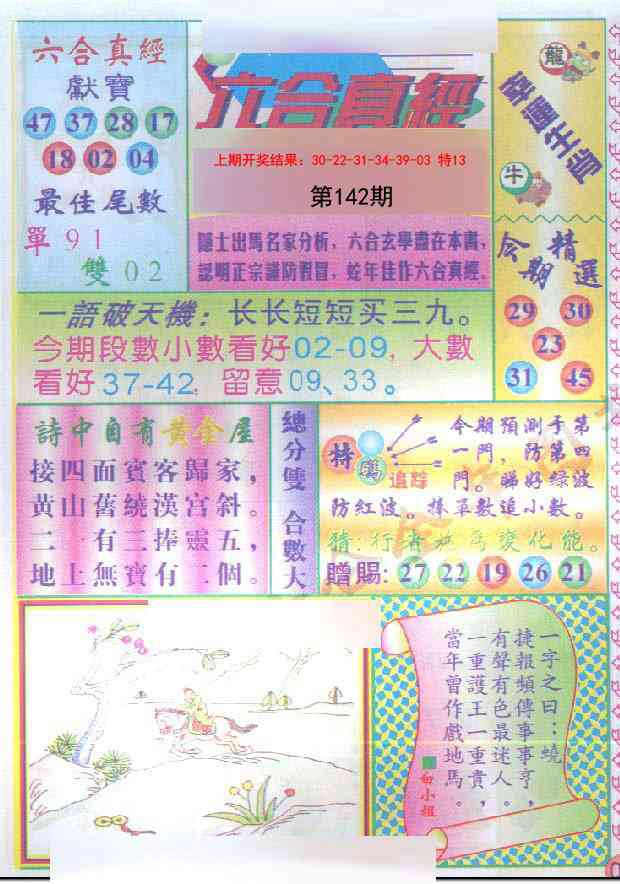 六合真經
獻寶
47 37 28 17
18 02 04
最佳尾數
單91
雙02
六合真經
上期开奖结果：30-22-31-34-39-03 特13
第142期
隱士出馬名家分析，六合玄學盡在本書，
認明正宗謹防假冒，蛇年佳作六合真經。
龍
幸運生肖
牛
今期
精選
29 30
23
31 45
一語破天機：长长短短买三九。
今期段數小數看好02-09，大數
看好37-42，留意09、33。
詩中自有黃金屋
接四面賓客歸家，
黃山舊繞漢宮斜。
二一有三捧靈五，
地上無寶有二個。
總分雙 合數大
特
追踪
今期預測于第
一門，防第四
門。睇好绿波
防紅波。捧單數追小數。
猜:行者
變化能。
贈賜:27 22 19 26 21
一字之曰：蟯
捷報頻傳事事亨，
有聲有色最迷人。
一重護王一重貴，
當年曾作戲地馬。
白小姐